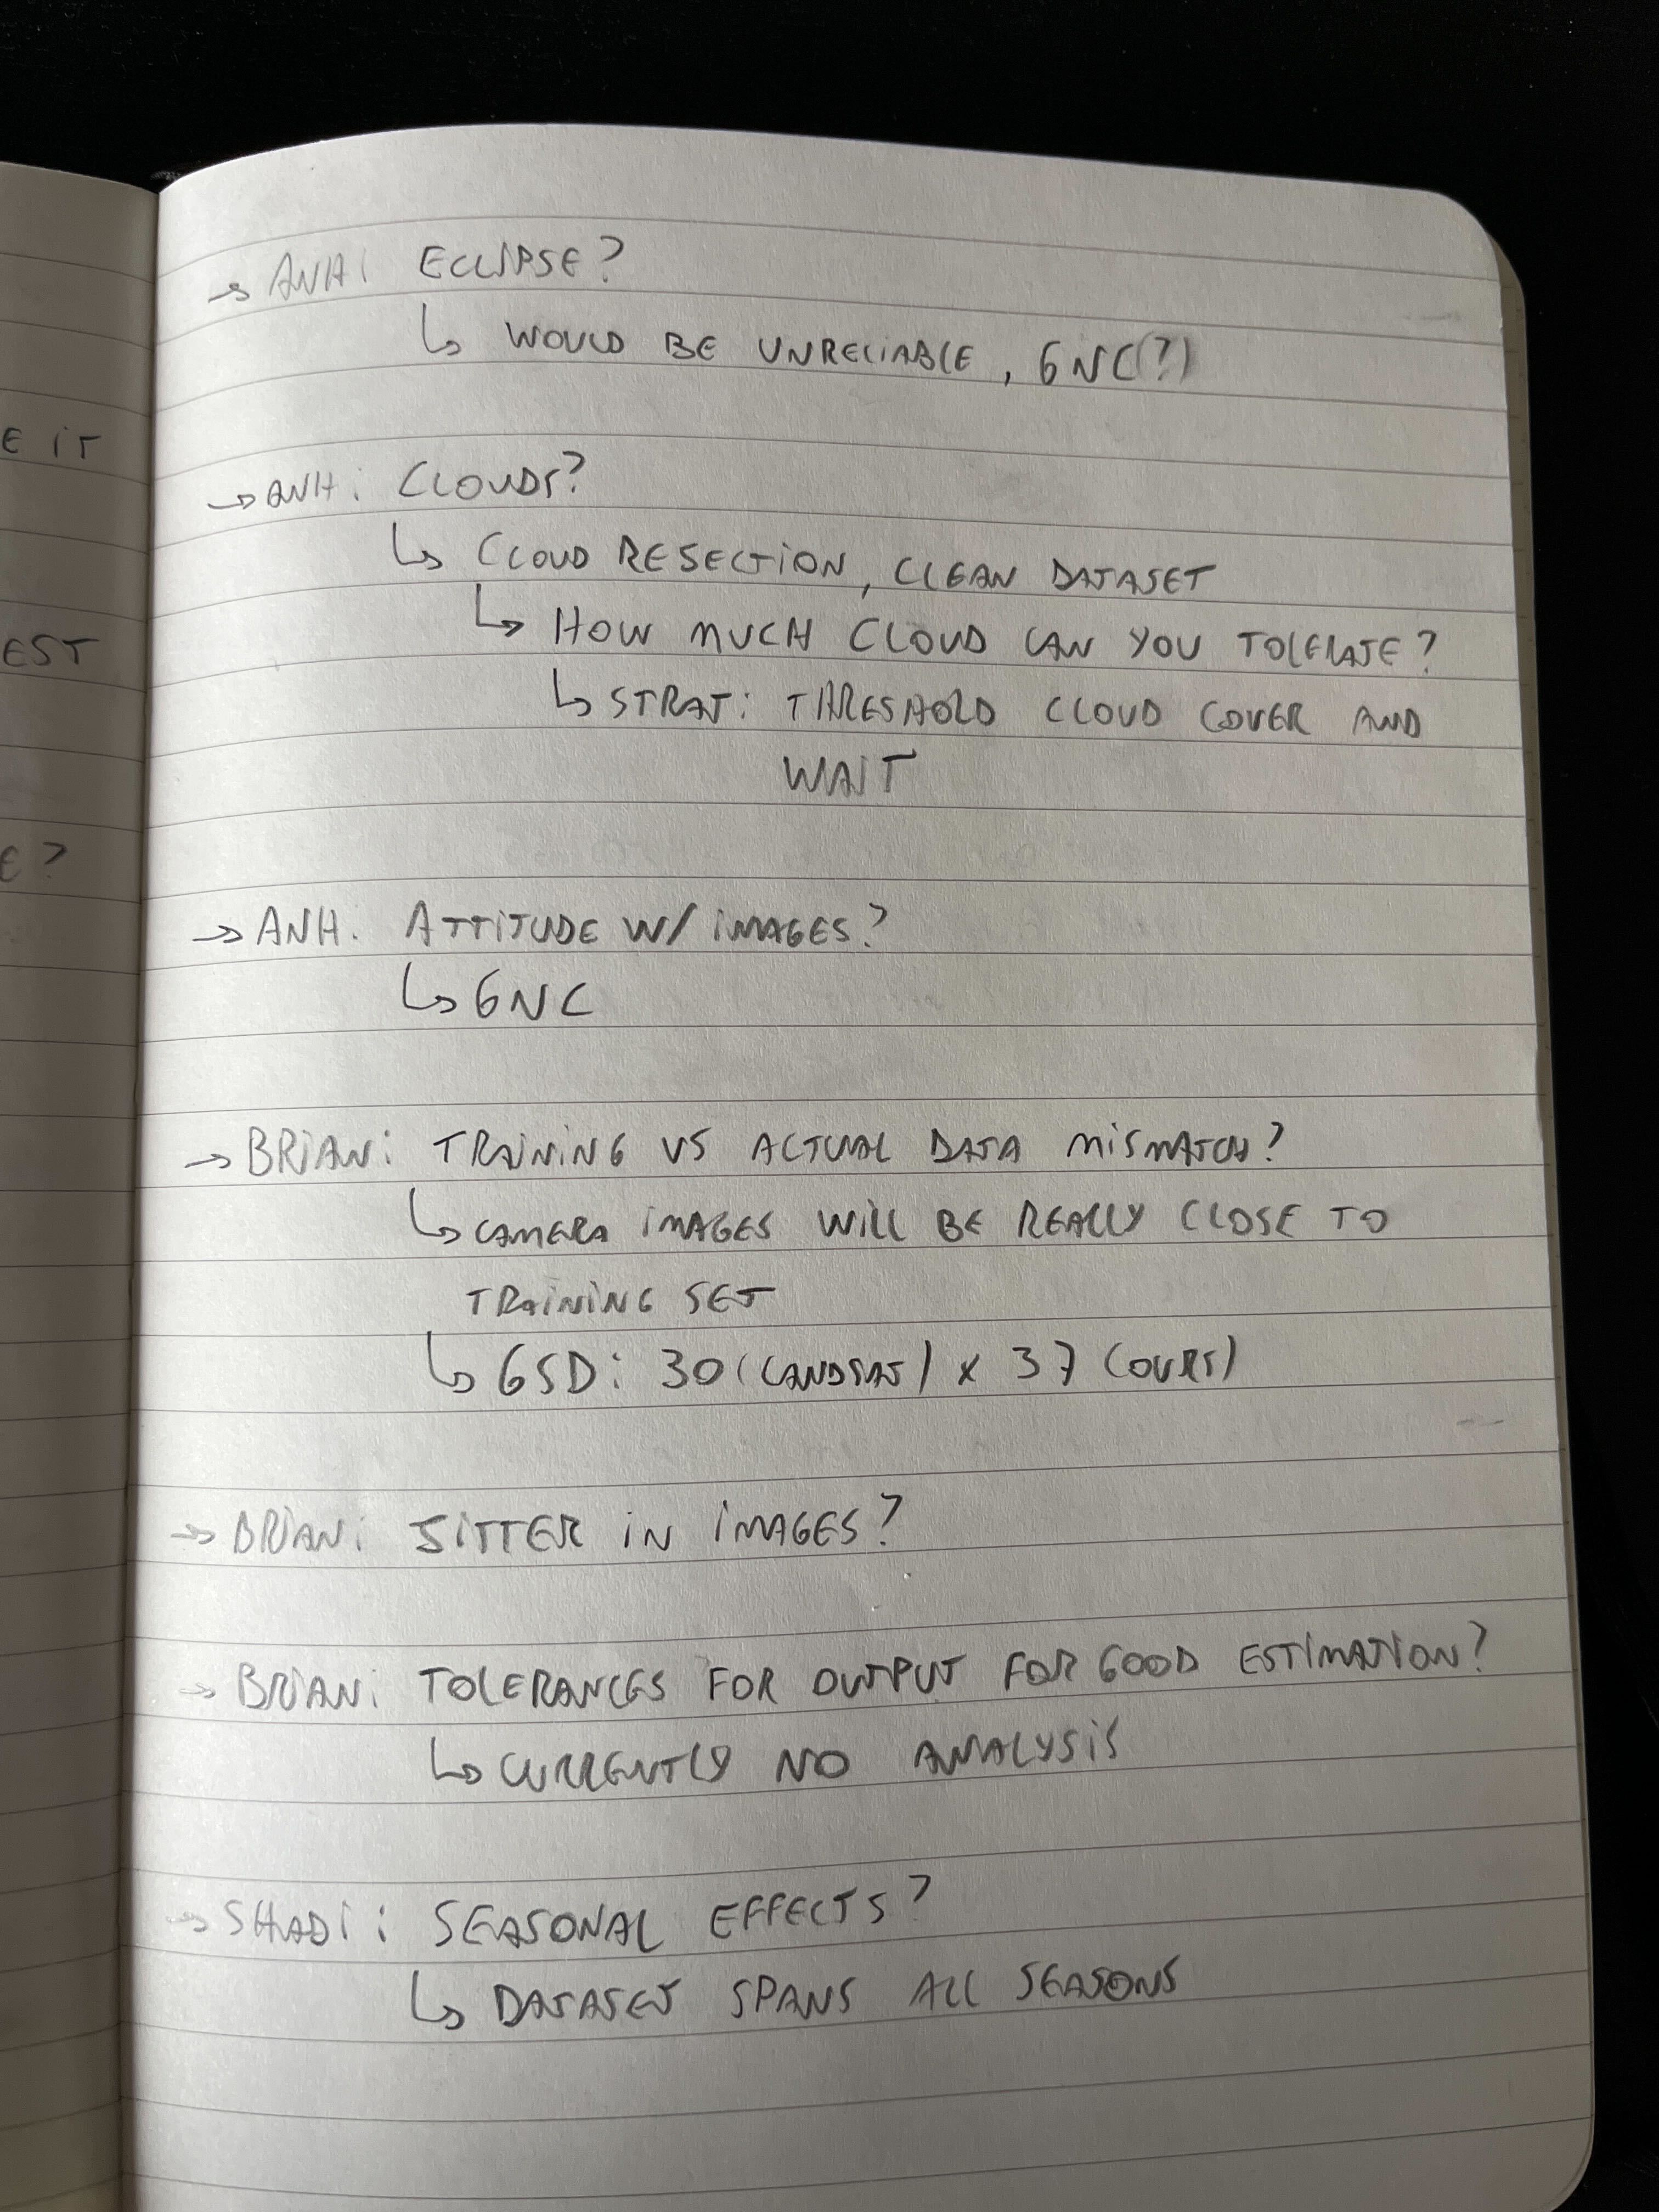 E IT
EST
E?
→ ANH: ECLIPSE?
↳ WOULD BE UNRELIABLE, GNC(?)
→ ANH: CLOUDS?
↳ CLOUD RESECTION, CLEAN DATASET
↳ HOW MUCH CLOUD CAN YOU TOLERATE?
↳ STRAT: THRESHOLD CLOUD COVER AND
WAIT
→ ANH: ATTITUDE W/ IMAGES?
↳ GNC
→ BRIAN: TRAINING VS ACTUAL DATA MISMATCH?
↳ CAMERA IMAGES WILL BE REALLY CLOSE TO
TRAINING SET
↳ GSD: 30 (LANDSAT) x 37 (OURS)
→ BRIAN: JITTER IN IMAGES?
→ BRIAN: TOLERANCES FOR OUTPUT FOR GOOD ESTIMATION?
↳ CURRENTLY NO ANALYSIS
→ SHADI: SEASONAL EFFECTS?
↳ DATASET SPANS ALL SEASONS